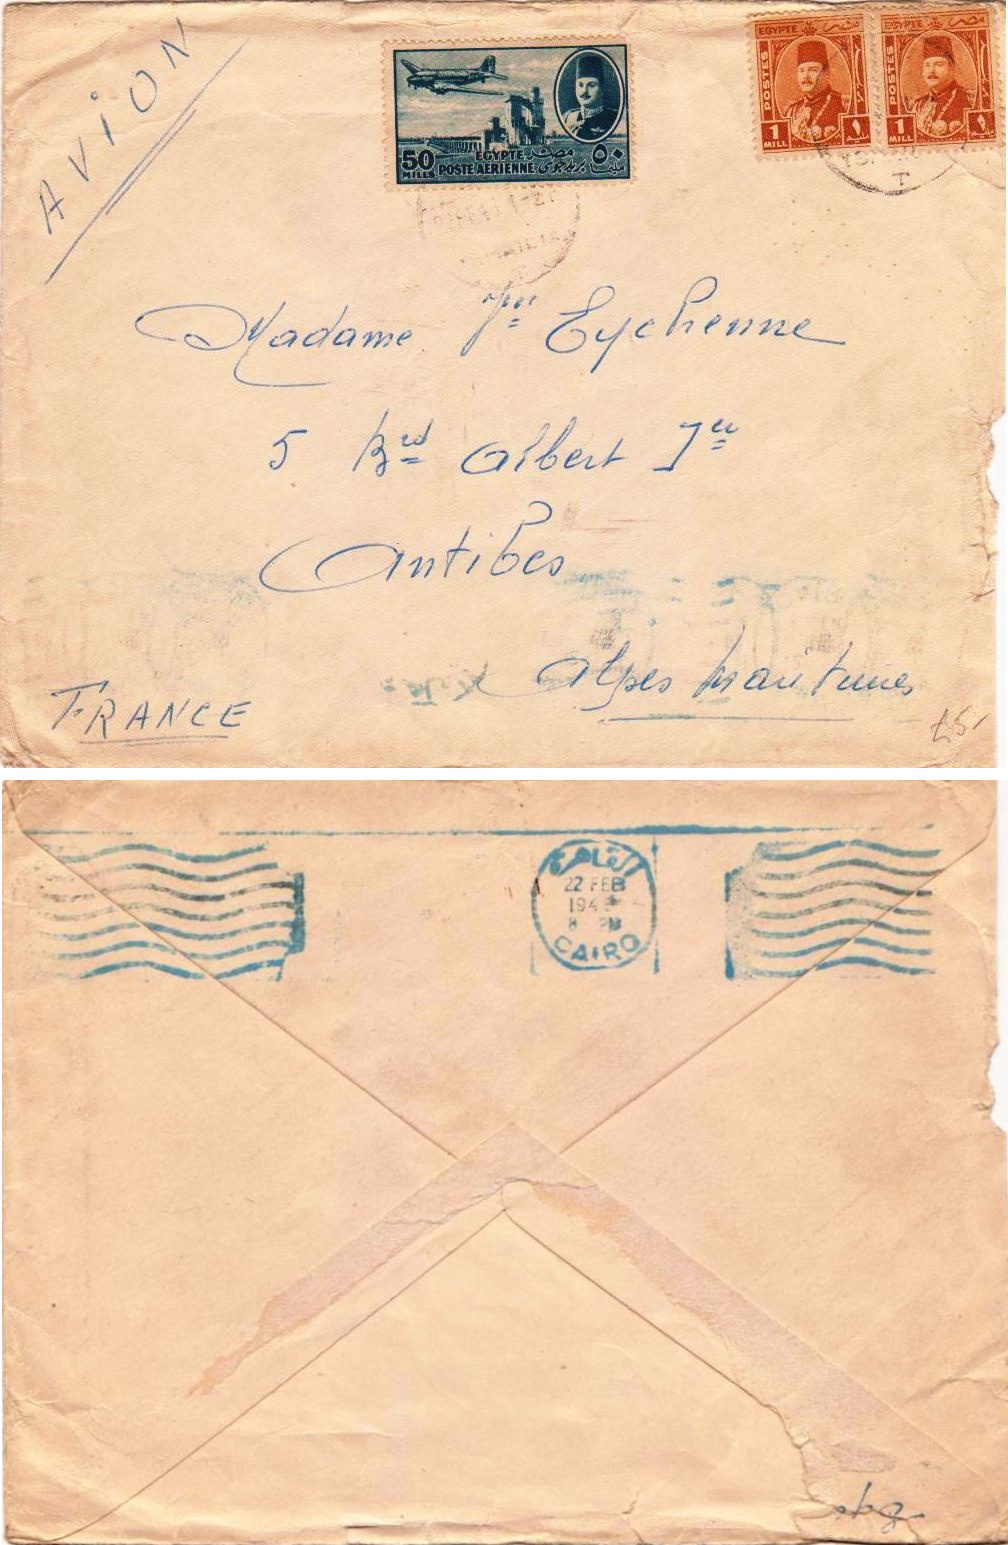 AVION
50 MILLS EGYPTE مصر ٥٠ مليما
POSTE AERIENNE بريد جوى
EGYPTE مصر
POSTES
1 MILL ١
EGYPTE مصر
POSTES
1 MILL ١
T
Madame Eychenne
5 Brd Albert 1er
Antibes
Alpes Maritimes
FRANCE
القاهرة
22 FEB
194
8 PM
CAIRO